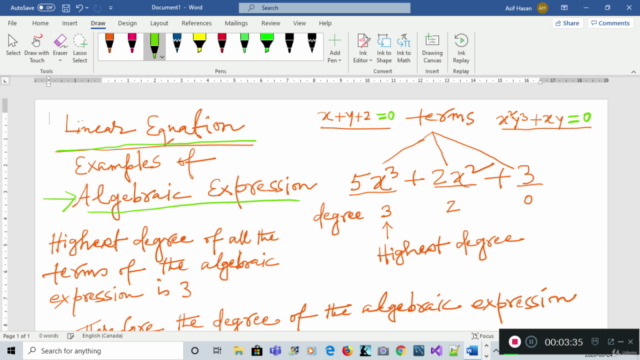 AutoSave Off
Document1 - Word
Asif Hasan
AH
File Home Insert Draw Design Layout References Mailings Review View Help Search
Share Comments
Select Draw with Touch Eraser Lasso Select
Add Pen Ink to Shape Ink to Math Drawing Canvas Ink Replay
Tools Pens Convert Insert Replay
x+y+2=0 terms x²y³+xy=0
Linear Equation
Examples of
→ Algebraic Expression
5x³ + 2x² + 3
degree 3 2 0
↑
Highest degree
Highest degree of all the
terms of the algebraic
expression is 3
Therefore the degree of the algebraic expression
Page 1 of 1 0 words English (Canada)
Type here to search
00:03:35